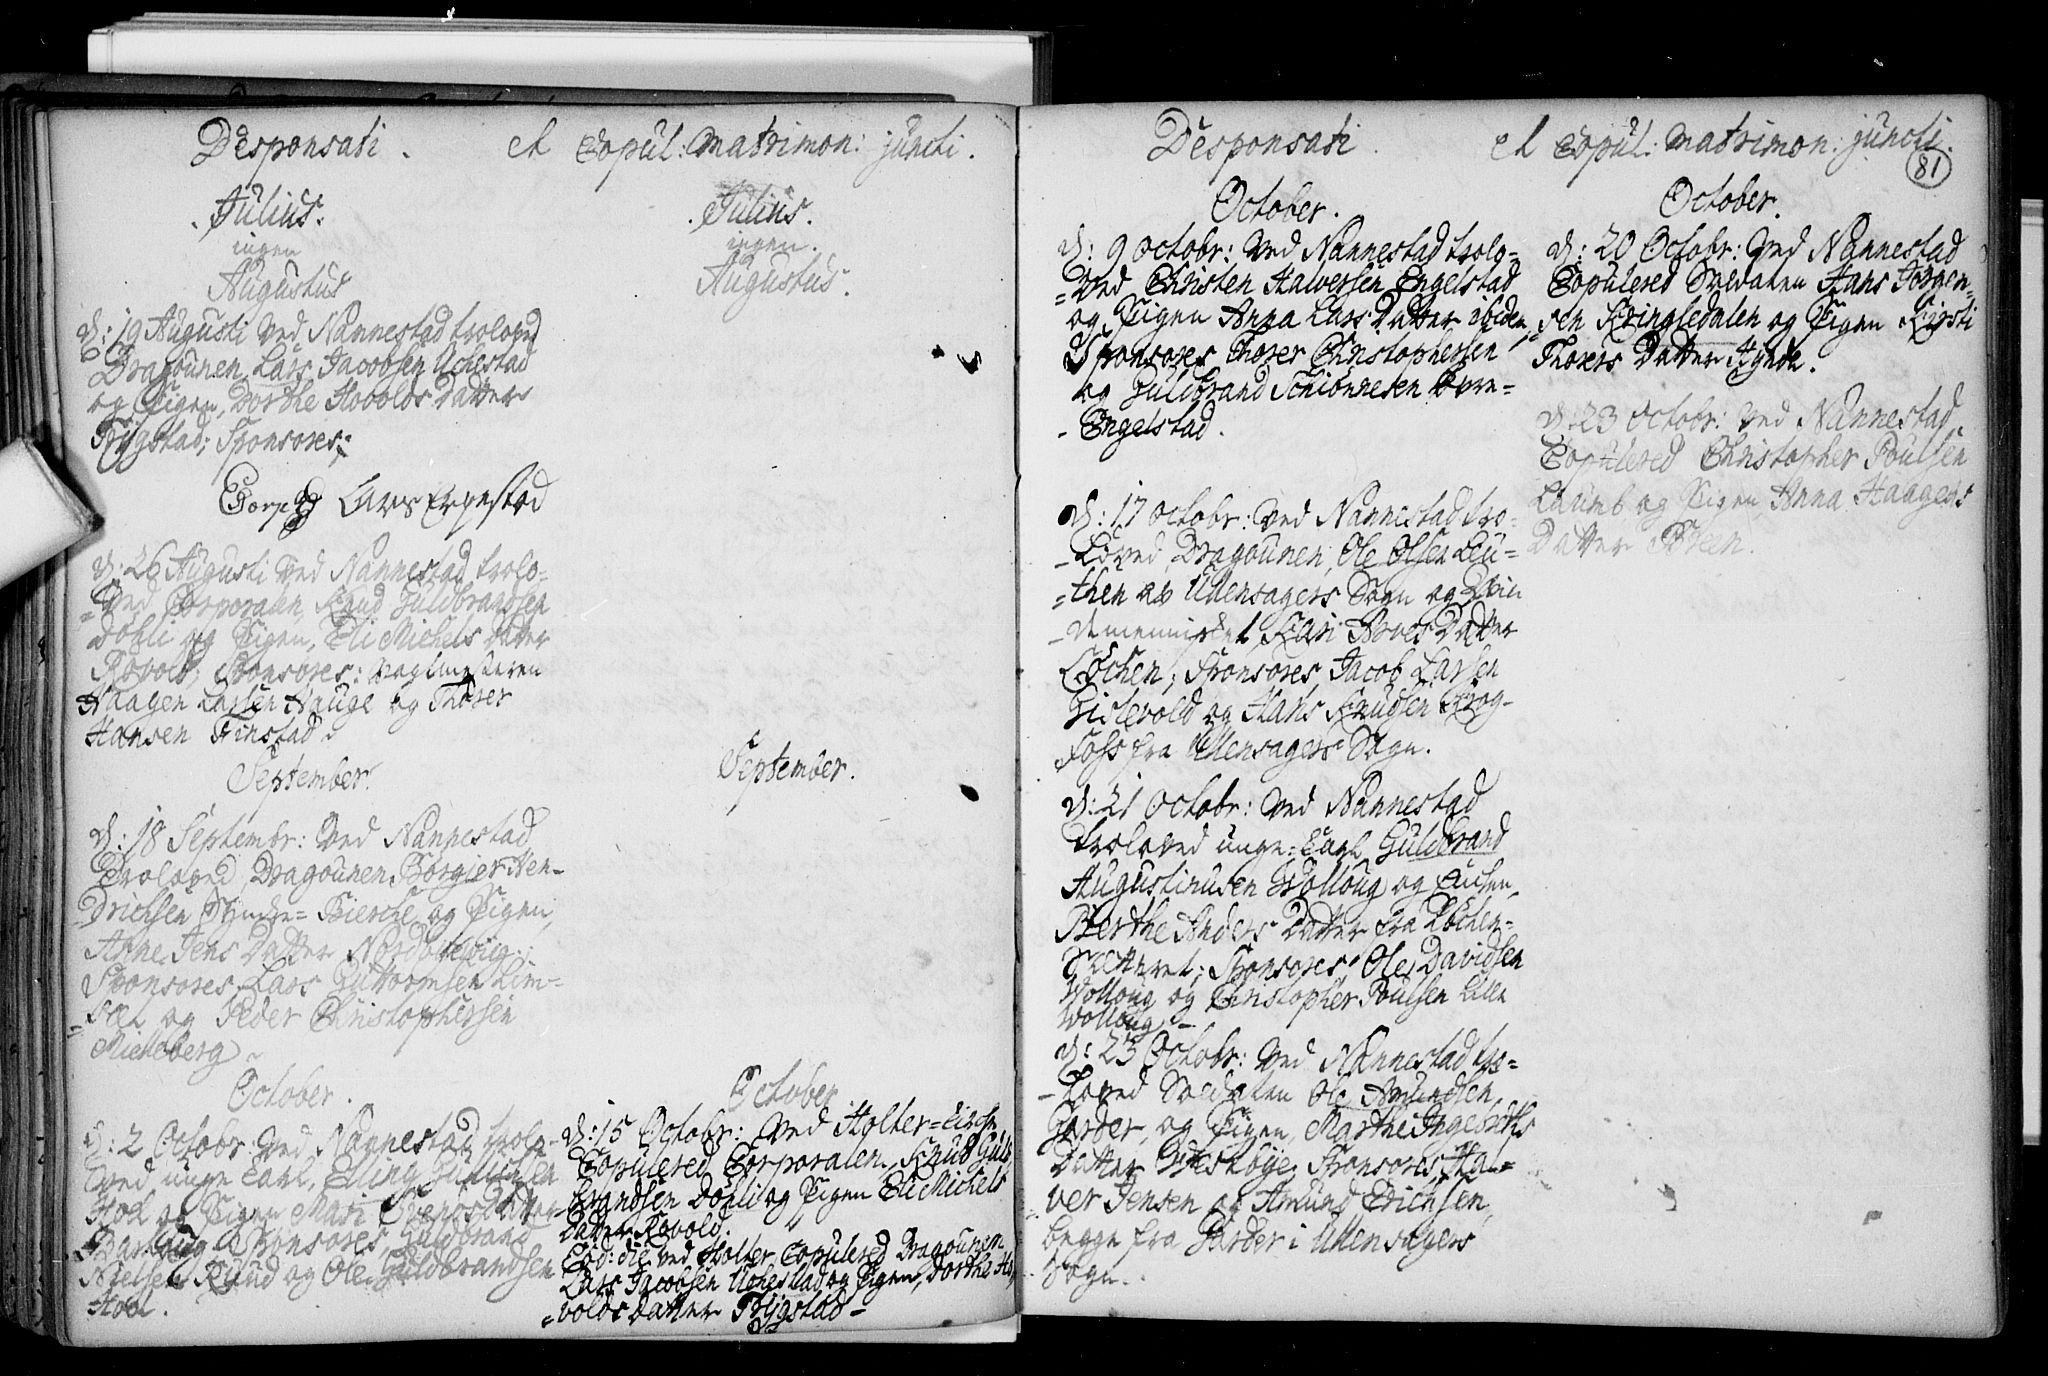 Desponsati. et Copul: matrimon: juncti.
Julius.
ingen
Augustus
d: 19 Augusti ved Nannestad troloved
Dragounen Lars Jacobsen Uchestad
og Pigen, Dorthe Hovolds Datter
Trÿgstad; Sponsores;
Lars
d: 26 Augusti ved Nannestad trolo-
=ved Corporalen, Knud Guldbrandsen
Døhli og Pigen, Eli Michels Datter
Rovold; Sponsores:
Haagen Larsen Hauge og Thorer
Hansen Finstad
September.
d: 18 Septembr: ved Nannestad
Troloved Dragounen Børgier Hen-
drichsen og Pigen,
Anne Jens Datter
Sponsores, Lars Guttormsen
og Peder Christophersen
Mieneberg
October.
d: 2 Octobr: ved Nannestad trolo-
=ved unge Carl, Elling
Hoel og Pigen Mari Datter
Sponsores, Guldbrand
Nielsen Ruud og Ole Guldbrandsen
Hoel.
Julius.
ingen.
Augustus.
September.
October
d: 15 Octobr: ved Holter=Kirche
Copulered Corporalen, Knud Guld-
brandsen Døhli og Pigen Eli Michels
Datter Rovold.
Eod: die ved Holter Copulered Dragounen
Lars Jacobsen Uchestad og Pigen, Dorthe Ho-
=volds Datter Trÿgstad -
Desponsati. et Copul: matrimon: juncti.
81
October.
d: 9 octobr: ved Nannestad trolo-
=ved Christen Halversen Engelstad
og Pigen Anna Lars Datter ibidem,
Sponsores Thorer Christophersen
og Guldbrand
- Engelstad.
d: 17 octobr: ved Nannestad tro-
- Loved Dragounen, Ole Olsen Leu-
=then af Ullensagers Sogn og Qvin
- demennisket Kari Datter
Løchen; Sponsores, Jacob Larsen
Gistevold og Hans Knudsen Krog-
foss fra Ullensagers Sogn.
d: 21 Octobr: ved Nannestad
troloved unge=Carl Guldbrand
Augustinusen Wolloug og Enchen
Berthe Anders Datter fra Løchen-
Sponsores, Ole Davidsen
Wolloug og Christopher Poulsen Lille
Wolloug -
d: 23 Octobr: ved Nannestad tro-
- Loved Soldaten Ole Amundsen
Garder, og Pigen, Marthe Ingebreths
Datter Sponsores, Hal-
ver Jensen og Amund Erichsen,
begge fra Garder i Ullensagers
Sogn.
October.
d: 20 Octobr: ved Nannestad
Copulered Soldaten Hans Jørgen-
sen Kringledalen og Pigen Kirsti
Thorers Datter Hÿnde.
d: 23 Octobr: ved Nannestad
Copulered Christopher Poulsen
Laumb og Pigen Anna Haagens
Datter Breen.